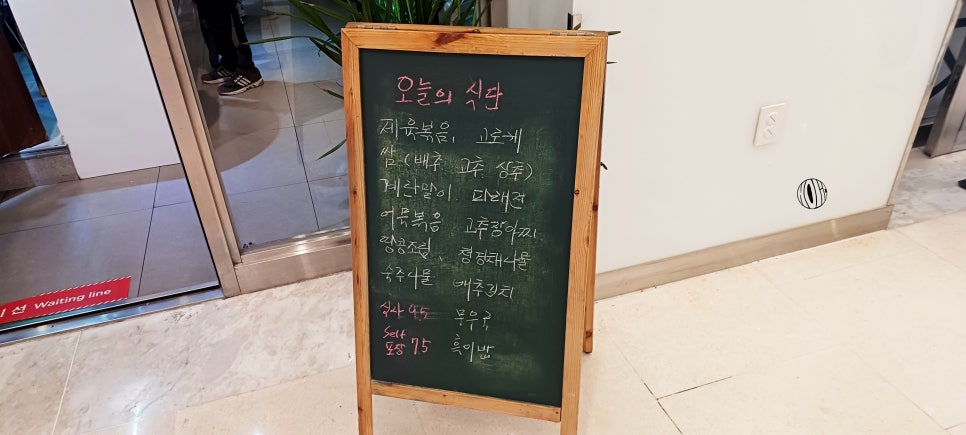 오늘의 식단
제육볶음, 고로케
쌈(배추 고추 상추)
계란말이 파래전
어묵볶음 고추장아찌
땅콩조림, 청경채나물
숙주나물 배추김치
식사 9.5 무우국
Self 포장 7.5 흑미밥
선 Waiting line